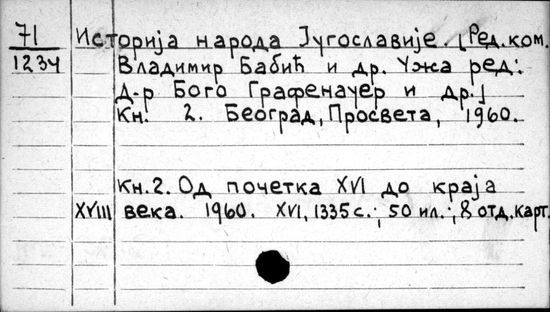 71
1234
Историја народа Југославије. [Ред. ком.
Владимир Бабић и др. Ужа ред.:
Д-р Бого Графенауер и др.]
Кн. 2. Београд, Просвета, 1960.
Кн. 2. Од почетка XVI до краја
XVIII века. 1960. XVI, 1335 с.; 50 ил.; 8 отд. карт.